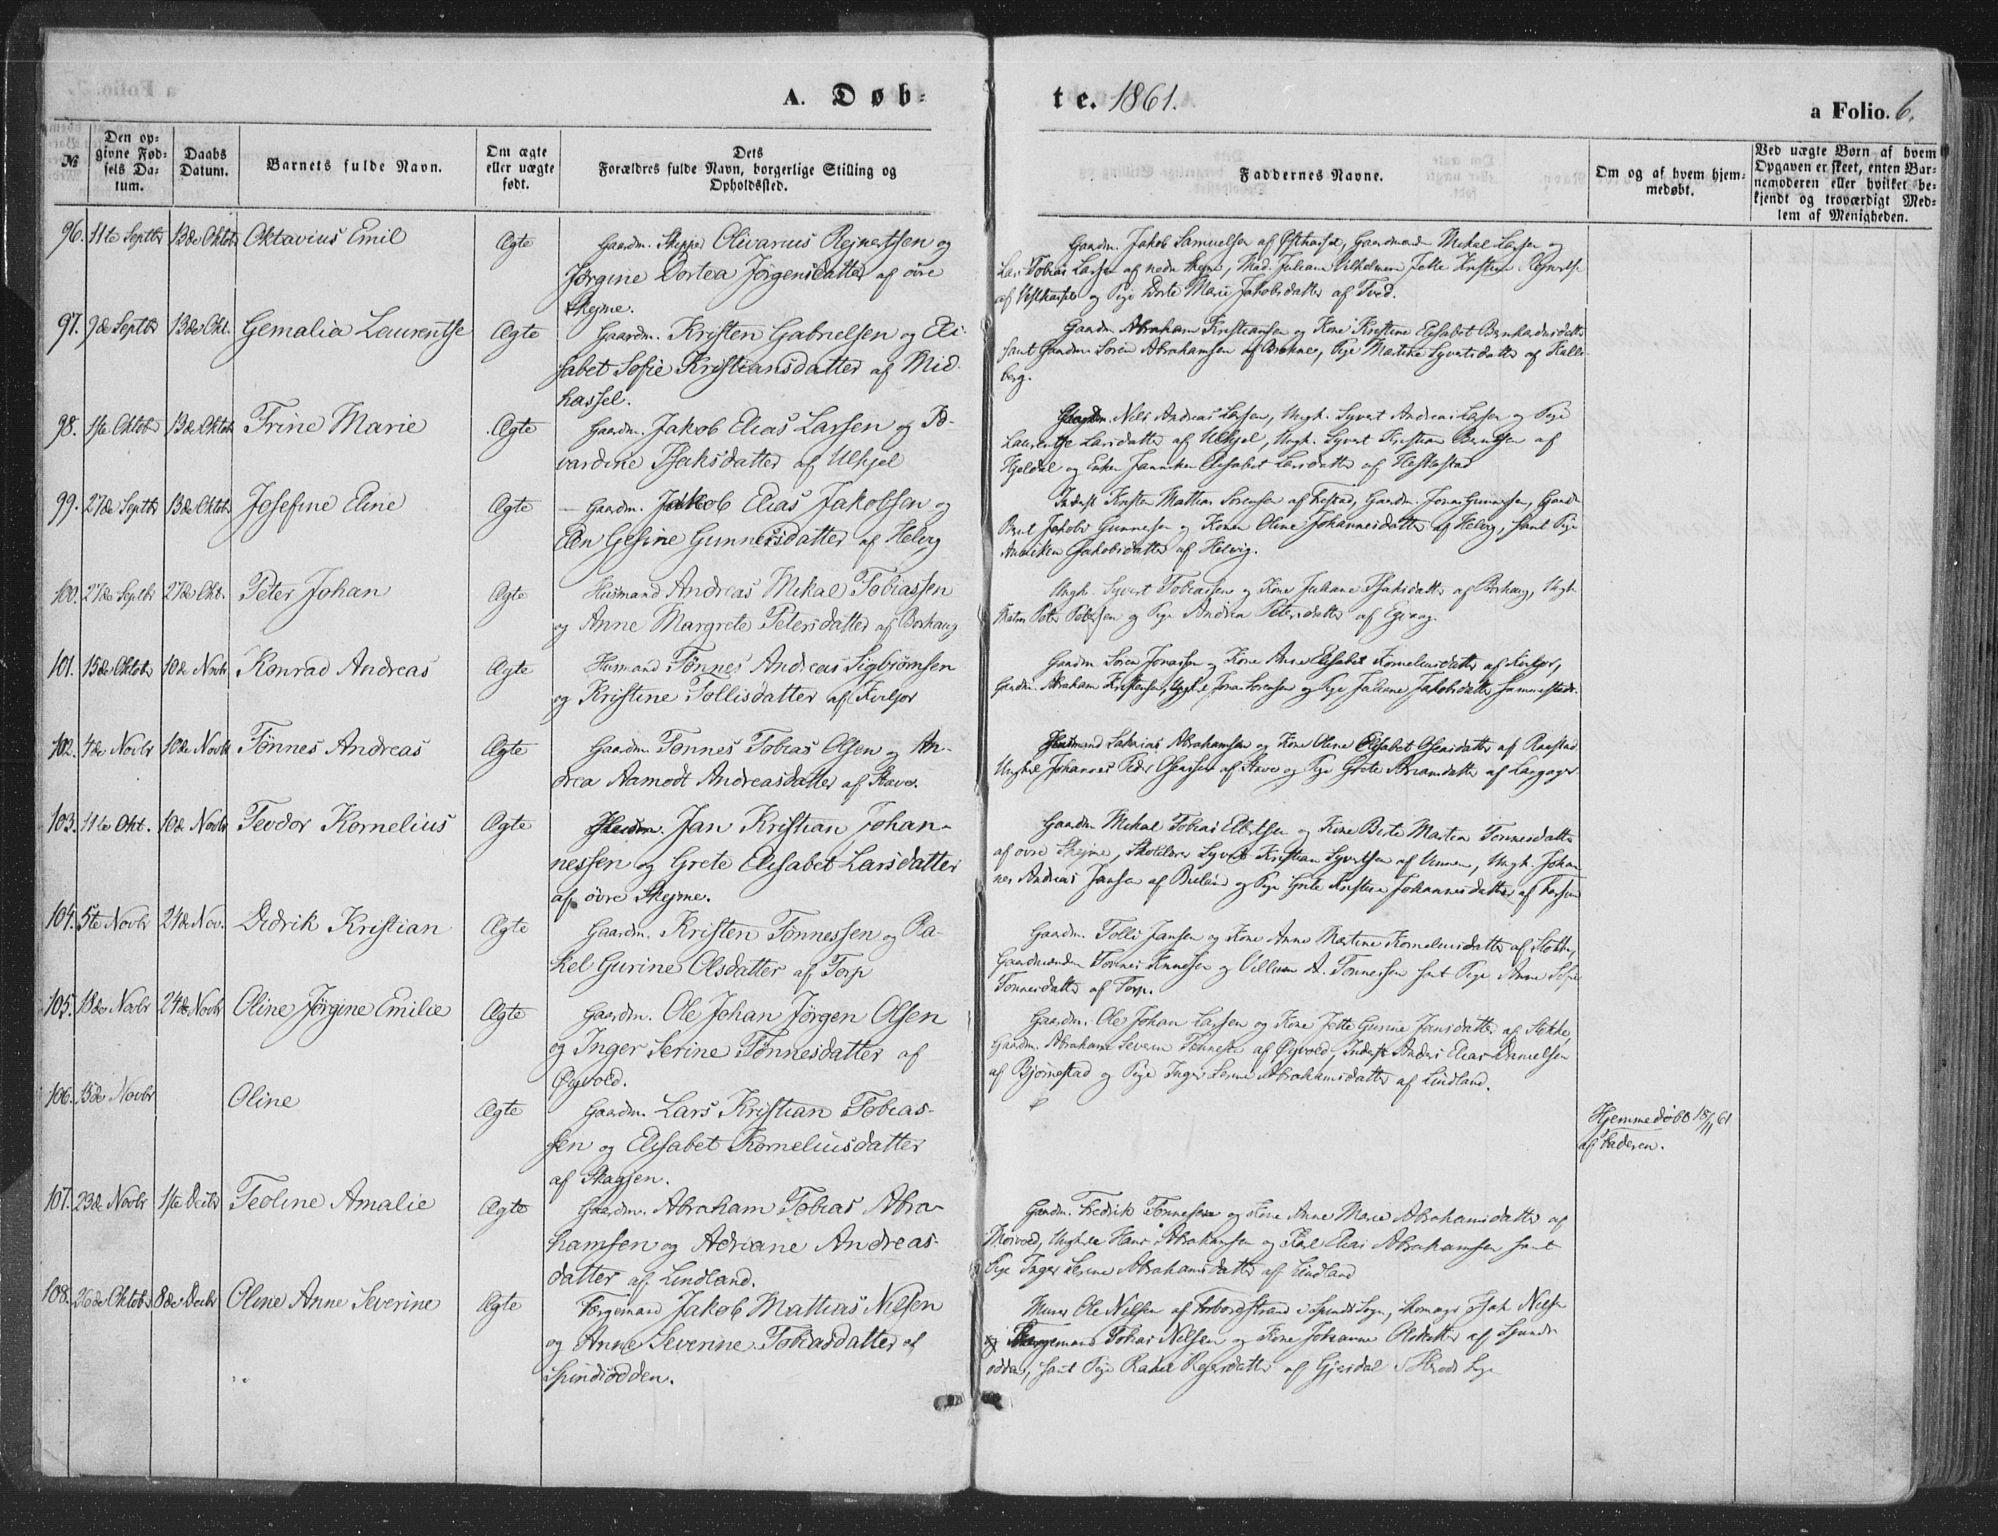 A. Døb-
te. 1861.
a Folio. 6.
№
Den op-
givne Fød-
sels Da-
tum.
Daabs
Datum.
Barnets fulde Navn.
Om ægte
eller uægte
født.
Dets
Forældres fulde Navn, borgerlige Stilling og
Opholdssted.
Faddernes Navne.
Om og af hvem hjem-
medøbt.
Ved uægte Børn af hvem
Opgaven er skeet, enten Bar-
nemoderen eller hvilket be-
kjendt og troværdigt Med-
lem af Menigheden.
96. 11te Septbr 13de Oktob Oktavius Emil Ægte Gaardm. Skipper Olivarius Rejnertsen og
Jørgine Dortea Jørgensdatter af øvre
Skejme.
Gaardm. Jakob Samuelsen af Østhassel, Gaardmand Mikal Larsen og
Lars Tobias Larsen af nedre Skejme, Mad. Juliane Vilhelmine Jette Kristine
af Vesthassel og Pige Dorte Marie Jakobsdatter af Tved.
97. 9de Septbr 13de Okt. Gemalia Laurentse Ægte Gaardm. Kristen Gabrielsen og Eli-
sabet Sofie Kristiansdatter af Mid-
hassel.
Gaardm. Abraham Kristiansen og Kone Kristine Elisabet Bernhardusdatter
samt Gaardm. Søren Abrahamsen af Brekne, Pige Martine Syvertsdatter af Kalle-
berg.
98. 1ste Oktob 13de Oktob Trine Marie Ægte Gaardm. Jakob Elias Larsen og To-
vardine Isaksdatter af Ulhjel
Gaardm. Nils Andreas Larsen, Ungk. Syvert Andreas Larsen og Pige
Laurentse Larsdatter af Ulhjel, Ungk. Syvert Kristian Berntsen af
Hjeldal og Enken Janniken Elisabet Larsdatter af Hestestad
99. 27de Septbr 13de Oktob Josefine Eline Ægte Gaardm. Jakob Elias Jakobsen og
Elen Gesine Gunnersdatter af Helvig
Inderst Kristen Mathias Sørensen af Gaardm. Jonas Gunnersen, Gaardm
Bernt Jakob Gunnersen og Konen Oline Johannesdatter af Helvig, samt Pige
Anniken Jakobsdatter af Helvig.
100. 27de Septbr 27de Okt. Peter Johan Ægte Husmand Andreas Mikal Tobiassen
og Anne Margrete Petersdatter af Borhaug
Ungk. Syvert Tobiassen og Kone Juliane Isaksdatter af Borhaug, Ungk.
Peter Petersen og Pige Andrea Petersdatter af Egvaag.
101. 15de Oktob 10de Novbr Konrad Andreas Ægte Husmand Tønnes Andreas Sigbjørnsen
og Kristine Tollisdatter af Kviljo
Gaardm. Søren Jonassen og Kone Anne Elisabet Kornelisdatter af Kviljo,
Gaardm. Abraham Kristensen, Ungk. Jonas Sørensen og Pige Juliane Jakobsdatter sammesteds.
102. 4de Novbr 10de Novbr Tønnes Andreas Ægte Gaardm. Tønnes Tobias Olsen og An-
drea Aamodt Andreasdatter af Stave.
Husmand Abrahamsen og Kone Oline Elisabet Osensdatter af Raastad
Ungkl. Johannes Peder Osensen af Stave og Pige Grete Briamsdatter af
103. 11te Okt. 10de Novbr Teodor Kornelius Ægte Gaardm. Jan Kristian Johan-
nessen og Grete Elisabet Larsdatter
af øvre Skejme.
Gaardm. Mikal Tobias Elertsen og Kone Berte Martea Tønnesdatter
af øvre Skejme, Skolelærer Syvert Kristian Syvertsen af Ungk. Johan-
nes Andreas Jansen af Brelund og Pige Grete Kristine Johannesdatter af Farsund
104. 5te Novbr 24de Nov. Didrik Kristian Ægte Gaardm. Kristen Tønnessen og Ra-
kel Gurine Olsdatter af Torp
Gaardm. Tolli Jansen og Kone Anne Martine Korneliusdatter af
Gaardmænden Tønnes Tønnesen og Villum A. Tønnessen samt Pige Anne Sofie
Tønnesdatter af Torp.
105. 18de Novbr 24de Novbr Oline Jørgine Emilie Ægte Gaardm. Ole Johan Jørgen Olsen
og Inger Serine Tønnesdatter af
Øgvold.
Gaardm. Ole Johan Larsen og Kone Jette Gurine Jansdatter af
Gaardm. Abraham Severin Tønnesen af Øgvold, Inderst Anders Elias Danielsen
af Bjørnestad og Pige Inger Serine Abrahamsdatter af Lindland.
106. 15de Novbr Oline Ægte Gaardm. Lars Kristian Tobias-
sen og Elisabet Korneliusdatter
af Skagsen.
Hjemmedøbt 15/11 61
af Faderen.
107. 23de Novbr 1ste Decbr Teoline Amalie Ægte Gaardm. Abraham Tobias Abra-
hamsen og Adriane Andreas-
datter af Lindland.
Gaardm. Fredrik Tønnesen og Kone Anne Marie Abrahamsdatter af
Ungkle Hans Abrahamsen og Karl Elias Abrahamsen samt
Pige Inger Serine Abrahamsdatter af Lindland
108. 26de Oktob 8de Decbr Oline Anne Severine Ægte Færgemand Jakob Mattias Nilsen
og Anne Severine Tobiasdatter af
Spindsodden.
Ole Nilsen af i Spinds Sogn, Isak Nilsen
og Færgemand Tobias Nilsen og Kone Johanne Olsdatter af Spinds-
odden, samt Pige Rakel Rejersdatter af Gjerdal i